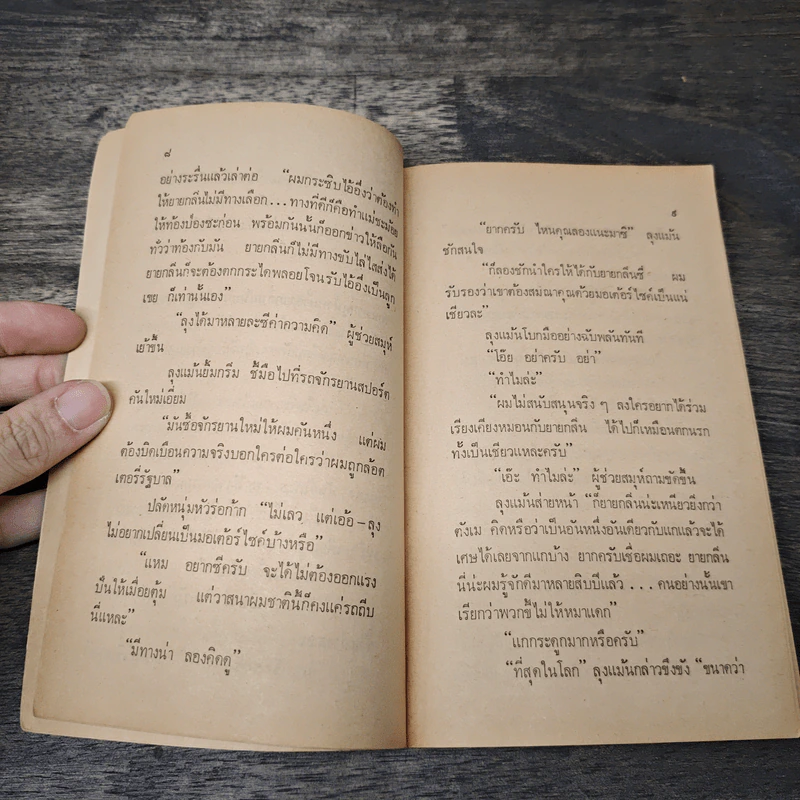 ๘
อย่างระรื่นแล้วเล่าต่อ “ผมกระซิบไอ้อึ่งว่าต้องทำ
ให้ยายกลิ่นไม่มีทางเลือก...ทางที่ดีก็คือทำแม่ชะม้อย
ให้ท้องป่องซะก่อน พร้อมกันนั้นก็ออกข่าวให้ลือกัน
ทั่วว่าท้องกับมัน ยายกลิ่นก็ไม่มีทางขับไล่ไสส่งได้
ยายกลิ่นก็จะต้องตกกระไดพลอยโจนรับไอ้อึ่งเป็นลูก
เขย ก็เท่านั้นเอง”
“ลุงได้มาหลายละซีค่าความคิด” ผู้ช่วยสมุห์
เย้าขึ้น
ลุงแม้นยิ้มกริ่ม ชี้มือไปที่รถจักรยานสปอร์ต
คันใหม่เอี่ยม
“มันซื้อจักรยานใหม่ให้ผมคันหนึ่ง แต่ผม
ต้องบิดเบือนความจริงบอกใครต่อใครว่าผมถูกล้อต
เตอรี่รัฐบาล”
ปลัดหนุ่มหัวร่อก้าก “ไม่เลว แต่เอ้อ-ลุง
ไม่อยากเปลี่ยนเป็นมอเตอร์ไซค์บ้างหรือ”
“แหม อยากซีครับ จะได้ไม่ต้องออกแรง
ปั่นให้เมื่อยตุ้ม แต่วาสนาผมชาตินี้ก็คงแค่รถถีบ
นี่แหละ”
“มีทางน่า ลองคิดดู”
๙
“ยากครับ ไหนคุณลองแนะมาซิ” ลุงแม้น
ชักสนใจ
“ก็ลองชักนำใครให้ได้กับยายกลิ่นซี ผม
รับรองว่าเขาต้องสมณาคุณด้วยมอเตอร์ไซค์เป็นแน่
เชียวละ”
ลุงแม้นโบกมืออย่างฉับพลันทันที
“โอ๊ย อย่าครับ อย่า”
“ทำไมล่ะ”
“ผมไม่สนับสนุนจริง ๆ ลงใครอยากได้ร่วม
เรียงเคียงหมอนกับยายกลิ่น ได้ไปก็เหมือนตกนรก
ทั้งเป็นเชียวแหละครับ”
“เอ๊ะ ทำไมล่ะ” ผู้ช่วยสมุห์ถามขัดขึ้น
ลุงแม้นส่ายหน้า “ก็ยายกลิ่นน่ะเหนียวยิ่งกว่า
ตังเม คิดหรือว่าเป็นอันหนึ่งอันเดียวกับแกแล้วจะได้
เศษได้เลยจากแกบ้าง ยากครับเชื่อผมเถอะ ยายกลิ่น
นี่น่ะผมรู้จักดีมาหลายสิบปีแล้ว...คนอย่างนั้นเขา
เรียกว่าพวกขี้ไม่ให้หมาแดก”
“แกกระดูกมากหรือครับ”
“ที่สุดในโลก” ลุงแม้นกล่าวขึงขัง “ขนาดว่า